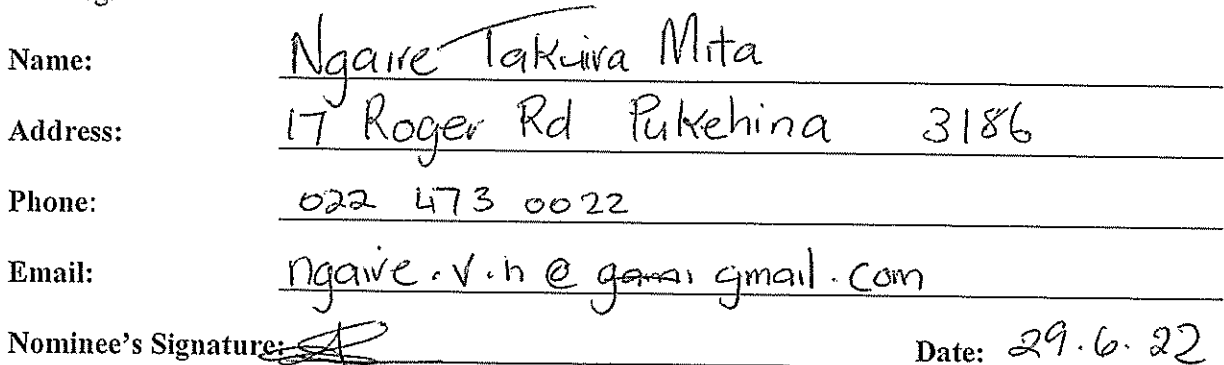 Name: Ngaire Takuira Mita
Address: 17 Roger Rd Pukehina 3186
Phone: 022 473 0022
Email: ngaire.v.h@ gmail.com
Nominee's Signature: Date: 29.6.22